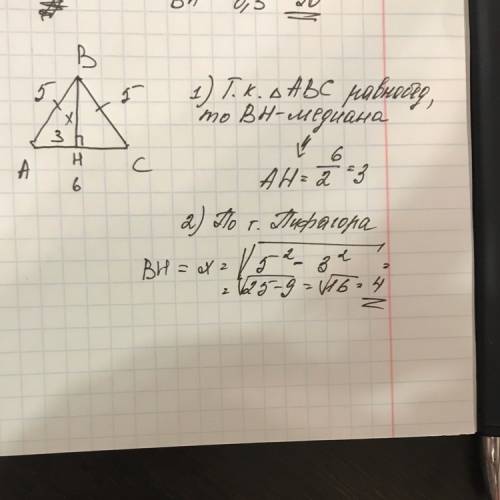 0,5 20
B
5 5
x
3
A H C
6
1) Т.к. △ABC равнобед,
то BH-медиана
⇓
AH = 6/2 = 3
2) По т. Пифагора
BH = x = √5² - 3² =
= √25-9 = √16 = 4